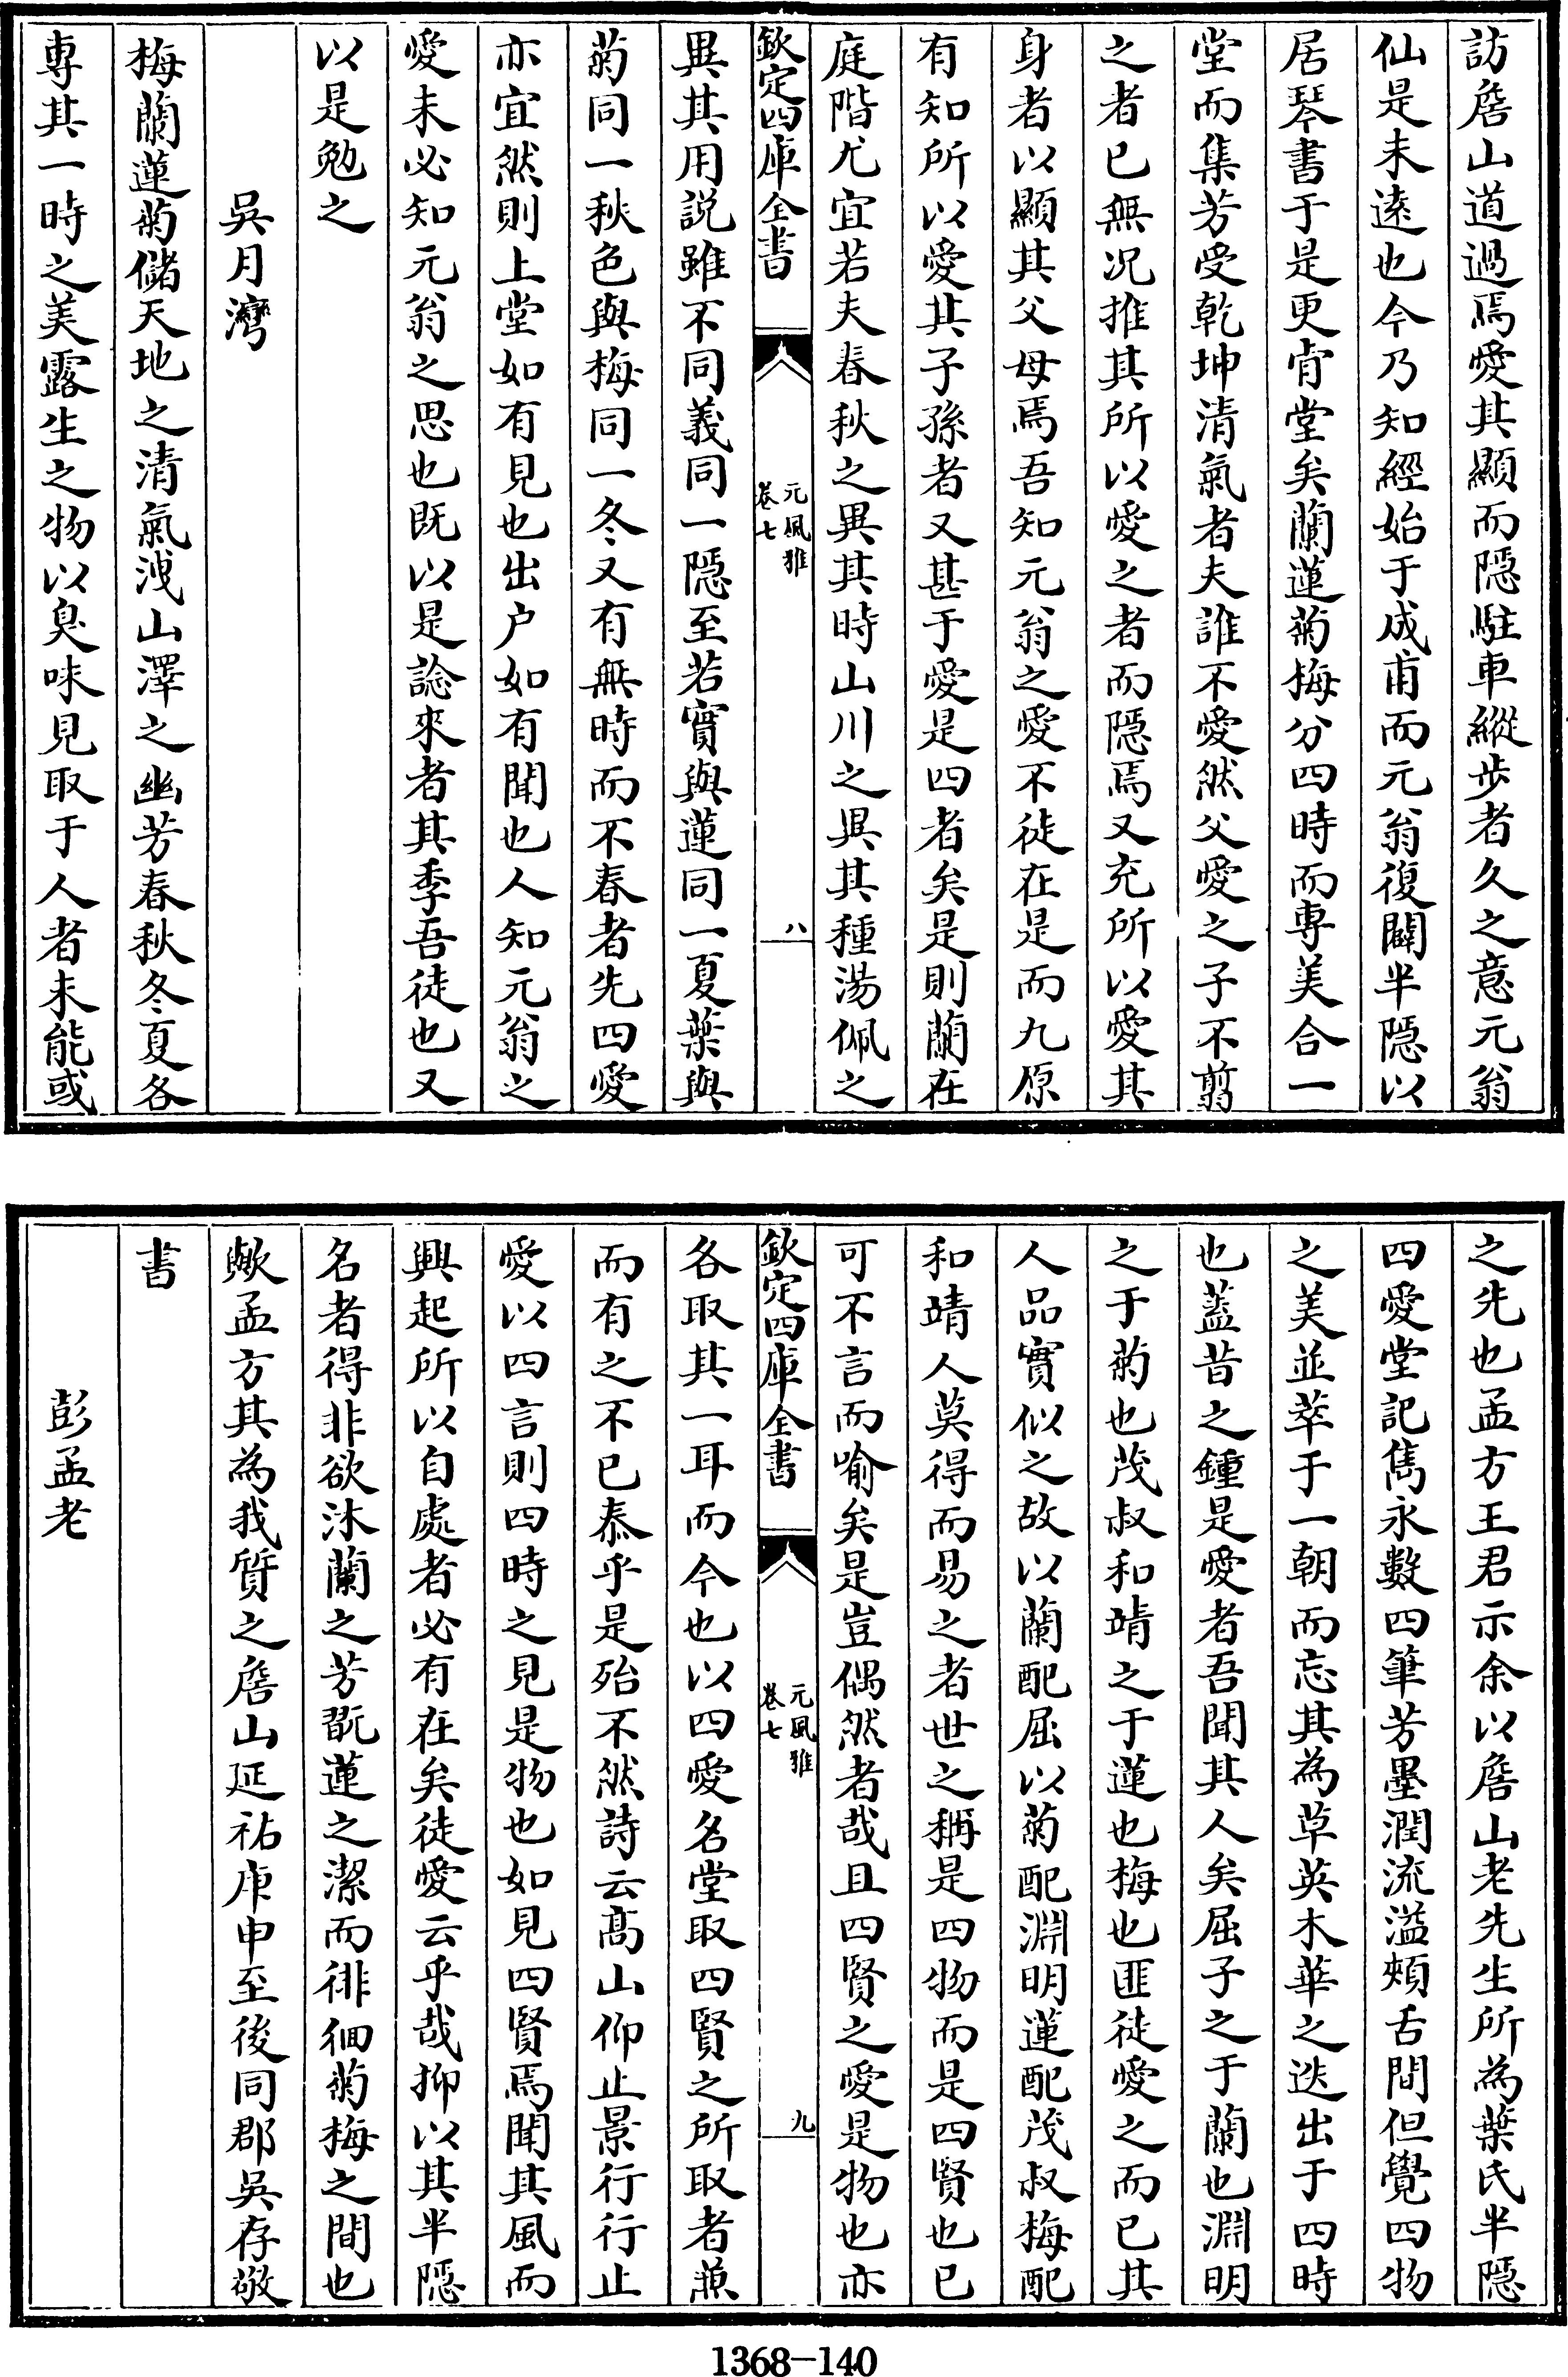 訪詹山道過焉愛其顯而隱駐車縱步者久之意元翁
仙是未逺也今乃知經始于成甫而元翁復闢半隱以
居琴書于是更肯堂矣蘭蓮菊梅分四時而專美合一
堂而集芳受乾坤清氣者夫誰不愛然父愛之子不剪
之者已無况推其所以愛之者而隱焉又充所以愛其
身者以顯其父母焉吾知元翁之愛不徒在是而九原
有知所以愛其子孫者又甚于愛是四者矣是則蘭在
庭階尤宜若夫春秋之異其時山川之異其種湯佩之
欽定四庫全書
元風雅
卷七
八
異其用説雖不同義同一隱至若實與蓮同一夏葉與
菊同一秋色與梅同一冬又有無時而不春者先四愛
亦宜然則上堂如有見也出户如有聞也人知元翁之
愛未必知元翁之思也既以是諗來者其季吾徒也又
以是勉之
吳月灣
梅蘭蓮菊儲天地之清氣洩山澤之幽芳春秋冬夏各
專其一時之美露生之物以臭味見取于人者未能或
之先也孟方王君示余以詹山老先生所為葉氏半隱
四愛堂記雋永數四筆芳墨潤流溢頰舌間但覺四物
之美並萃于一朝而忘其為草英木華之迭出于四時
也葢昔之鍾是愛者吾聞其人矣屈子之于蘭也淵明
之于菊也茂叔和靖之于蓮也梅也匪徒愛之而已其
人品實似之故以蘭配屈以菊配淵明蓮配茂叔梅配
和靖人莫得而易之者世之稱是四物而是四賢也已
可不言而喻矣是豈偶然者哉且四賢之愛是物也亦
欽定四庫全書
元風雅
卷七
九
各取其一耳而今也以四愛名堂取四賢之所取者兼
而有之不已泰乎是殆不然詩云髙山仰止景行行止
愛以四言則四時之見是物也如見四賢焉聞其風而
興起所以自處者必有在矣徒愛云乎哉抑以其半隱
名者得非欲沐蘭之芳翫蓮之潔而徘徊菊梅之間也
歟孟方其為我質之詹山延祐庚申至後同郡吳存敬
書
彭孟老
1368-140